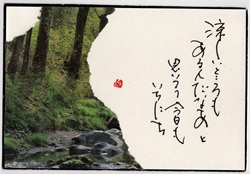 涼しいところも
あるんだなあと
思いつつ今日も
いちにち